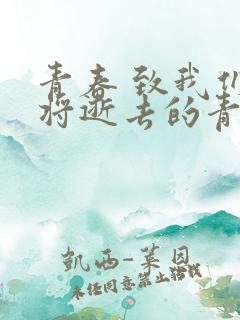 青春致我们
将逝去的青
凱西-莱恩
未经同意禁止转载